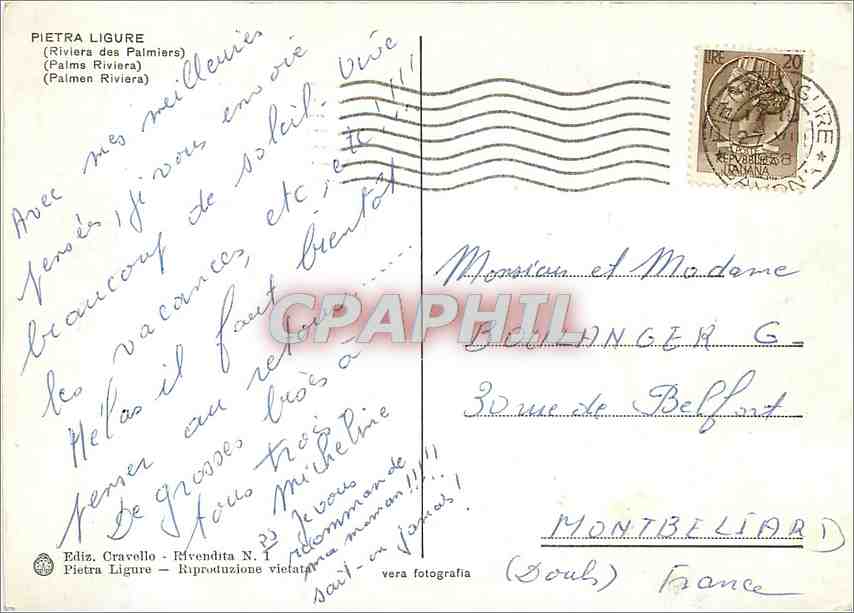 PIETRA LIGURE
(Riviera des Palmiers)
(Palms Riviera)
(Palmen Riviera)
Avec mes meilleures
pensées, je vous envoie
beaucoup de soleil. Vive
les vacances, etc, etc !!!!
Hélas il faut bientôt
penser au retour.......
De grosses bises à
tous trois
Micheline
PS Je vous
recommande
ma maman !!!!!
sait-on jamais !
LIRE 20
POSTE
REPVBBLICA
ITALIANA
LIGURE
Monsieur et Madame
BOULANGER G
30 rue de Belfort
MONTBELIARD
(Doubs) France
CPAPHIL
Ediz. Cravello - Rivendita N. 1
Pietra Ligure — Riproduzione vietata
vera fotografia